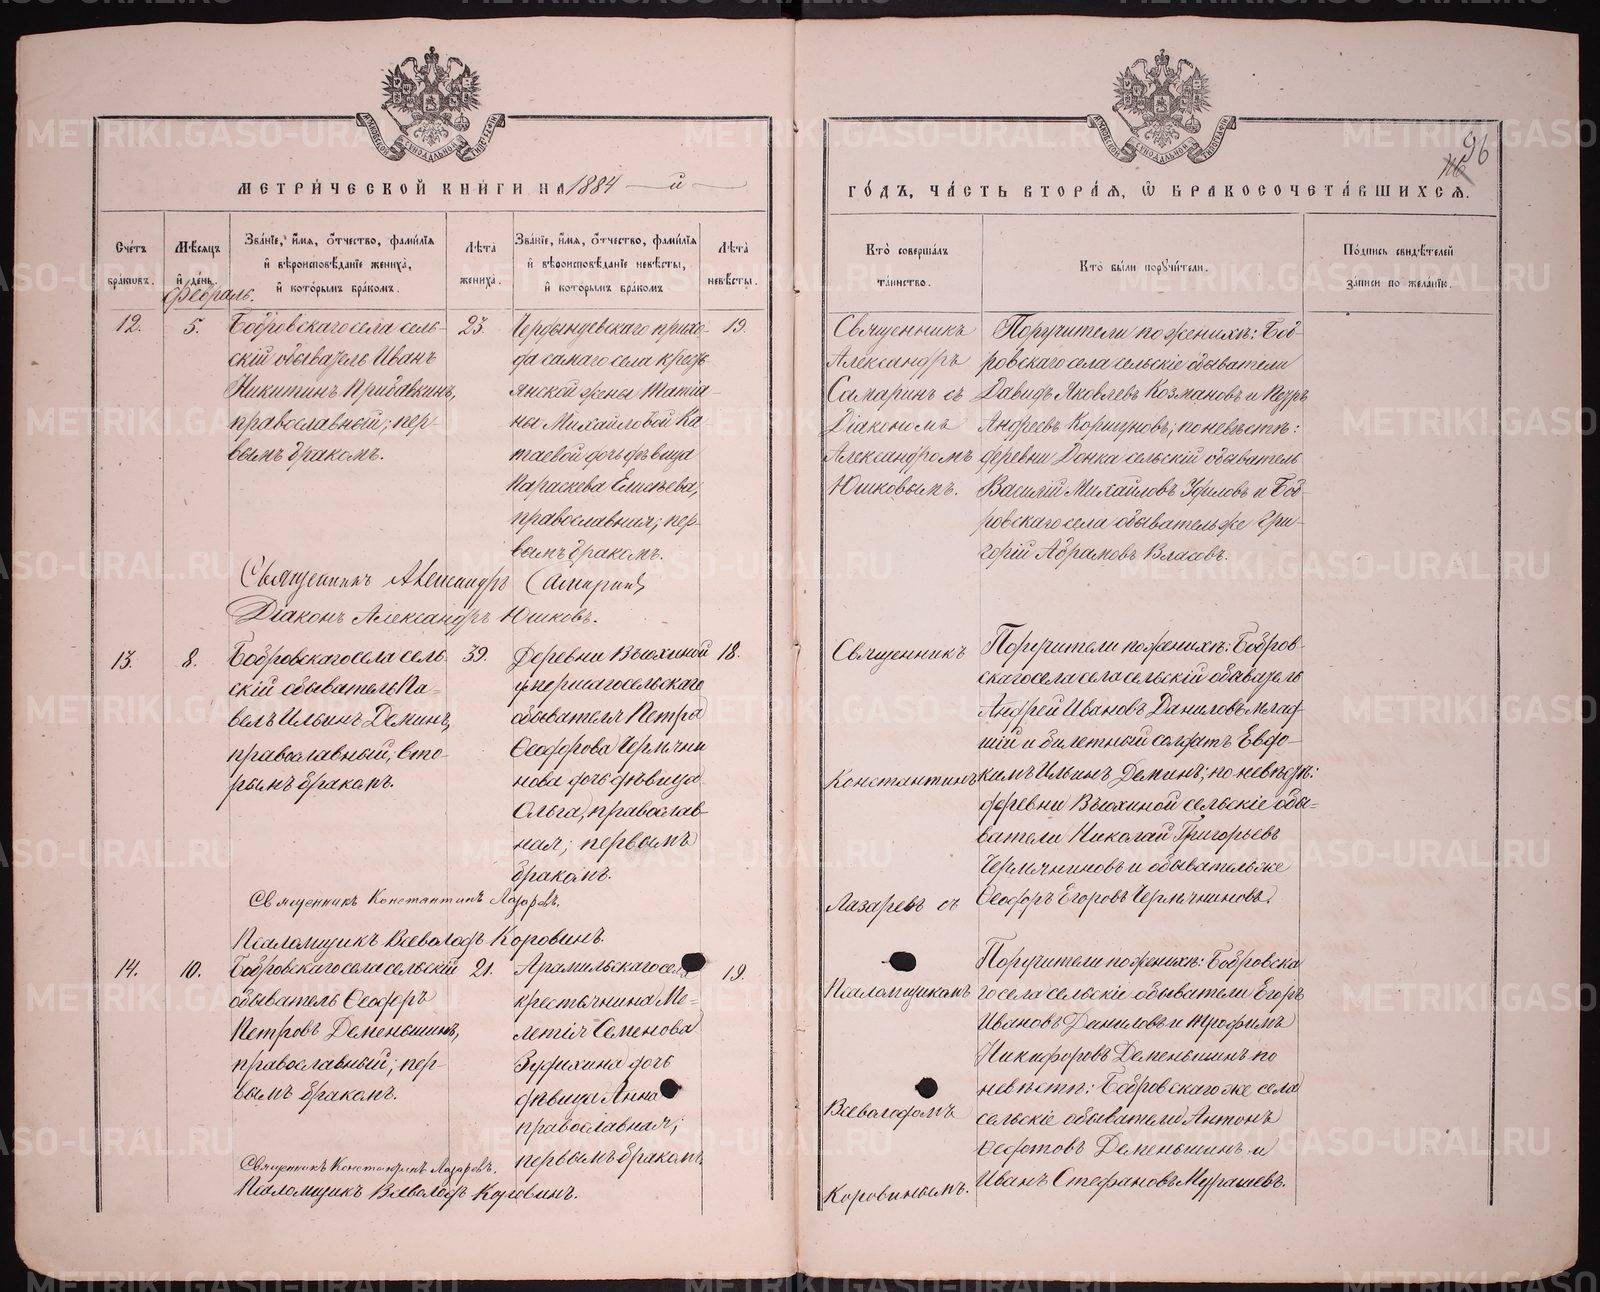 МЕТРИ́ЧЕСКОЙ КНИ́ГИ НА 1884 й
Сче́тъ бра́ковъ.
Мѣ́сяцъ и҆ де́нь.
Зва́нїе, и҆́мя, о҆́тчество, фами́лїя и҆ вѣроисповѣ́данїе жениха̀, и҆ кото́рымъ бра́комъ.
Лѣ́та жениха̀.
Зва́нїе, и҆́мя, о҆́тчество, фами́лїя и҆ вѣроисповѣ́данїе невѣ́сты, и҆ кото́рымъ бра́комъ
Лѣ́та невѣ́сты.
Февраль.
12.
5.
Бобровскаго села сель-
скій обыватель Иванъ
Никитинъ Прибавкинъ,
православный; пер-
вымъ бракомъ.
23.
прихо-
да самаго села кресть
янской жены Татіа-
ны Михайловой Ка-
таевой дочь дѣвица
Параскева Елисѣева,
православная; пер-
вымъ бракомъ.
19.
Священникъ Александръ Самаринъ
Діаконъ Александръ Юшковъ.
13.
8.
Бобровскаго села сель
скій обыватель Па-
велъ Ильинъ Деминъ,
православный, вто-
рымъ бракомъ.
39.
Деревни Вьюхиной
умершаго сельскаго
обывателя Петра
Ѳеодорова Чермяни
нова дочь дѣвица
Ольга, православ-
ная; первымъ
бракомъ.
18.
Священникъ Константинъ Лазаревъ.
Псаломщикъ Всеволодъ Коровинъ.
14.
10.
Бобровскаго села сельскій
обыватель Ѳеодоръ
Петровъ Деменьшинъ,
православный; пер-
вымъ бракомъ.
21.
Арамильскаго села
крестьянина Ме-
летія Семенова
дочь
дѣвица Анна
православная;
первымъ бракомъ.
19.
Священникъ Константинъ Лазаревъ.
Псаломщикъ Всеволодъ Коровинъ.
96
ГО́ДЪ, ЧА́СТЬ ВТОРА́Я, Ѽ БРАКОСОЧЕТА́ВШИХСЯ.
Кто̀ соверша́лъ та́инство.
Кто̀ бы́ли поручи́тели.
По́дпись свидѣ́телей за́писи по жела́нїю.
Священникъ
Александръ
Самаринъ съ
Діакономъ
Александромъ
Юшковымъ.
Поручители по женихѣ: Боб-
ровскаго села сельскіе обыватели
Давидъ Яковлевъ Козмановъ и Петръ
Андреевъ Коршуновъ; по невѣстѣ:
деревни сельскій обыватель
Василій Михайловъ и Боб-
ровскаго села обыватель же Гри-
горій Абрамовъ Власовъ.
Священникъ
Константинъ
Лазаревъ съ
Псаломщикомъ
Всеволодомъ
Коровинымъ.
Поручители по женихѣ: Бобров-
скаго села сельскій обыватель
Андрей Ивановъ Даниловъ млад-
шій и билетный солдатъ Евдо-
кимъ Ильинъ Деминъ; по невѣстѣ:
деревни Вьюхиной сельскіе обы-
ватели Николай Григорьевъ
Чермяниновъ и обыватель же
Ѳеодоръ Егоровъ Чермяниновъ.
Поручители по женихѣ: Бобровска
го села сельскіе обыватели Егоръ
Ивановъ Даниловъ и Трофимъ
Никифоровъ Деменьшинъ по
невѣстѣ: Бобровскаго же села
сельскіе обыватели Антонъ
Ѳедотовъ Деменьшинъ и
Иванъ Стефановъ Мурашевъ.
METRIKI.GASO-URAL.RU